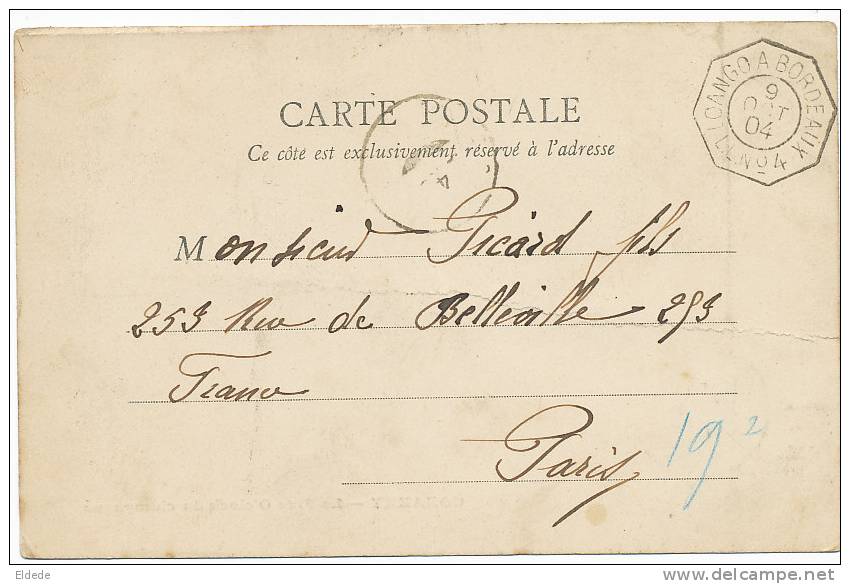 CARTE POSTALE
Ce côté est exclusivement réservé à l'adresse
LOANGO A BORDEAUX
9
OCT
04
L.L. Nº 4
Monsieur Picard fils
253 Rue de Belleville 253
France
Paris
19 2
Eldede
delcampe.net